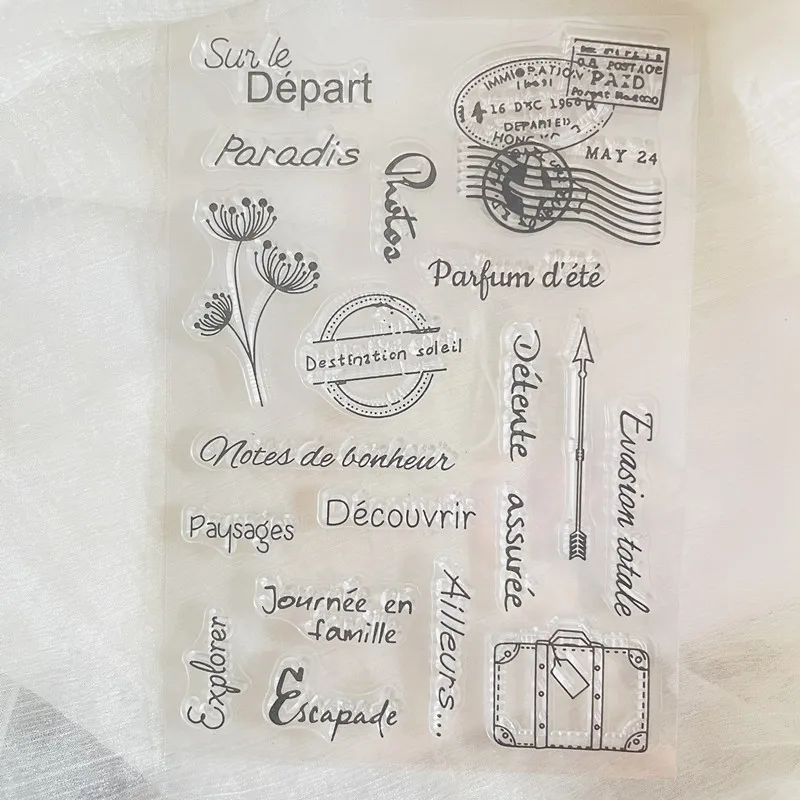 Sur le
Départ
IMMIGRATION
16 DEC 1966
DEPARTED
POSTAGE
PAID
MAY 24
Paradis
Photos
Parfum d'été
Destination soleil
Détente assurée
Evasion totale
Notes de bonheur
Découvrir
Paysages
Journée en
famille
Ailleurs...
Explorer
Escapade